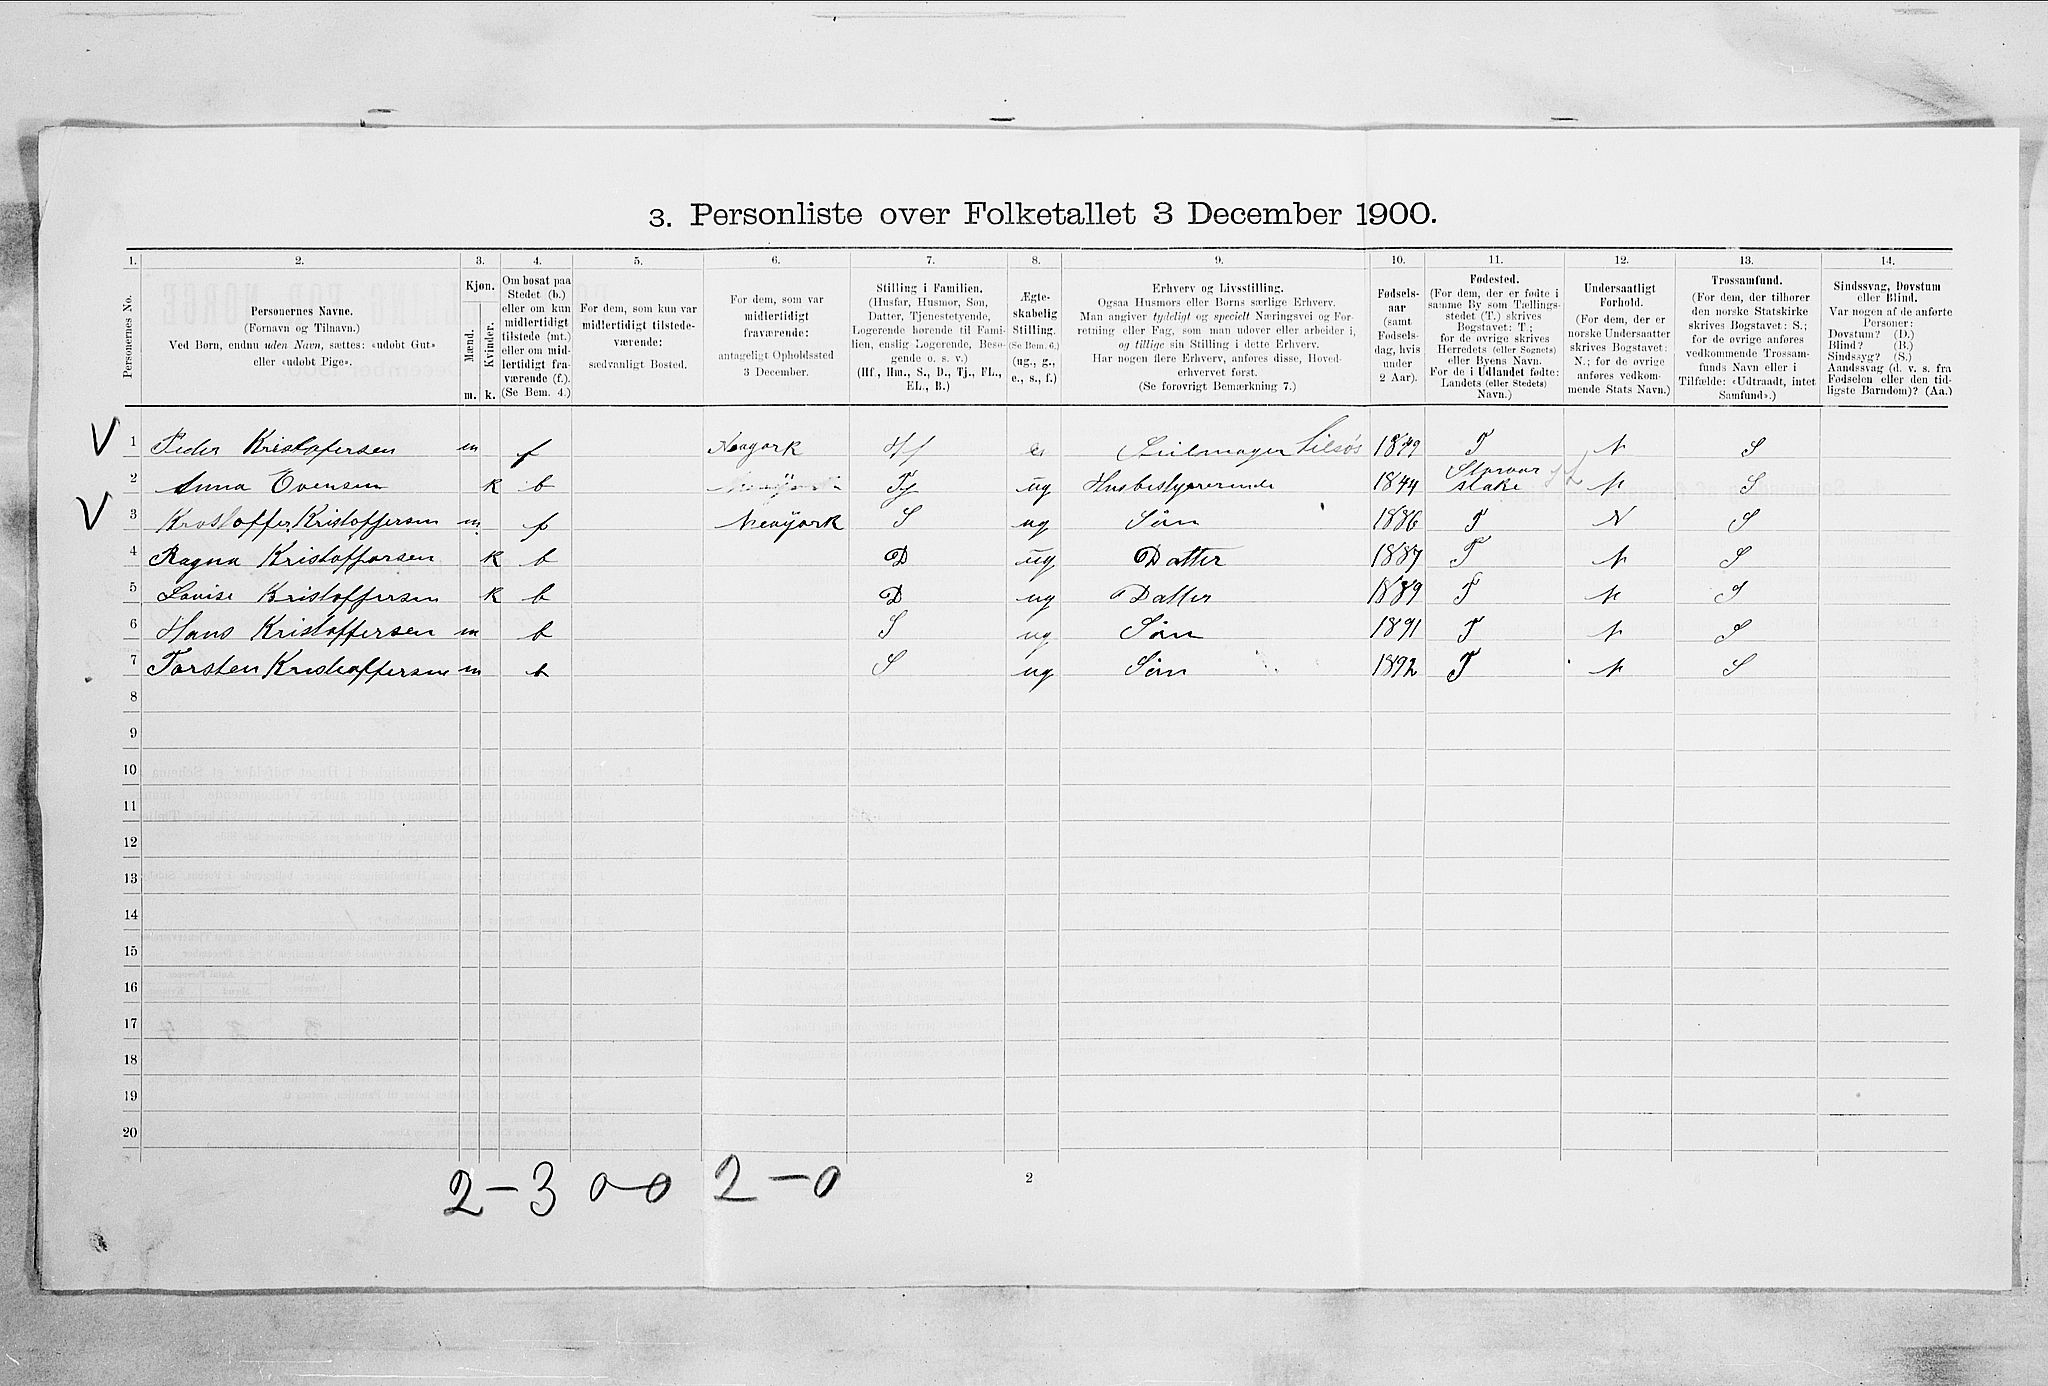 3. Personliste over Folketallet 3 December 1900.
1. 2. 3. 4. 5. 6. 7. 8. 9. 10. 11. 12. 13. 14.
Personernes No.
Personernes Navne.
(Fornavn og Tilnavn.)
Ved Børn, endnu uden Navn, sættes: «udøbt Gut»
eller «udøbt Pige».
Kjøn.
Mænd. Kvinder.
m. k.
Om bosat paa
Stedet (b.)
eller om kun
midlertidigt
tilstede (mt.)
eller om mid-
lertidigt fra-
værende (f.).
(Se Bem. 4.)
For dem, som kun var
midlertidigt tilstede-
værende:
sædvanligt Bosted.
For dem, som var
midlertidigt
fraværende:
antageligt Opholdssted
3 December.
Stilling i Familien.
(Husfar, Husmor, Søn,
Datter, Tjenestetyende,
Logerende hørende til Fami-
lien, enslig Logerende, Besø-
gende o. s. v.)
(Hf., Hm., S., D., Tj., FL.,
EL., B.)
Ægte-
skabelig
Stilling.
(Se Bem. 6.)
(ug., g.,
e., s., f.)
Erhverv og Livsstilling.
Ogsaa Husmors eller Børns særlige Erhverv.
Man angiver tydeligt og specielt Næringsvei og For-
retning eller Fag, som man udover eller arbeider i,
og tillige sin Stilling i dette Erhverv.
Har nogen flere Erhverv, anføres disse, Hoved-
erhvervet først.
(Se forøvrigt Bemærkning 7.)
Fødsels-
aar
(samt
Fødsels-
dag, hvis
under
2 Aar).
Fødested.
(For dem, der er fødte i
samme By som Tællings-
stedet (T.) skrives
Bogstavet: T.;
for de øvrige skrives
Herredets (eller Sognets)
eller Byens Navn.
For de i Udlandet fødte:
Landets (eller Stedets)
Navn.)
Undersaatligt
Forhold.
(For dem, der er
norske Undersaatter
skrives Bogstavet:
N.; for de øvrige
anføres vedkom-
mende Stats Navn.)
Trossamfund.
(For dem, der tilhører
den norske Statskirke
skrives Bogstavet: S.;
for de øvrige anføres
vedkommende Trossam-
funds Navn eller i
Tilfælde: «Udtraadt, intet
Samfund».)
Sindssvag, Døvstum
eller Blind.
Var nogen af de anførte
Personer:
Døvstum? (D.)
Blind? (B.)
Sindssyg? (S.)
Aandssvag (d. v. s. fra
Fødselen eller den tid-
ligste Barndom)? (Aa.)
V 1 Peder Kristofersen m f Newyork Hf e Seilmager 1849 T N S
2 Anna Evensen k b Tj ug Husbestyrerende 1844 N S
V 3 Kristoffer Kristoffersen m f Newyork S ug Søn 1886 T N S
4 Ragna Kristoffersen k b D ug Datter 1887 T N S
5 Lovise Kristoffersen k b D ug Datter 1889 T N S
6 Hans Kristoffersen m b S ug Søn 1891 T N S
7 Torsten Kristoffersen m b S ug Søn 1892 T N S
8
9
10
11
12
13
14
15
16
17
18
19
20
2-3 0-0 2-0
2